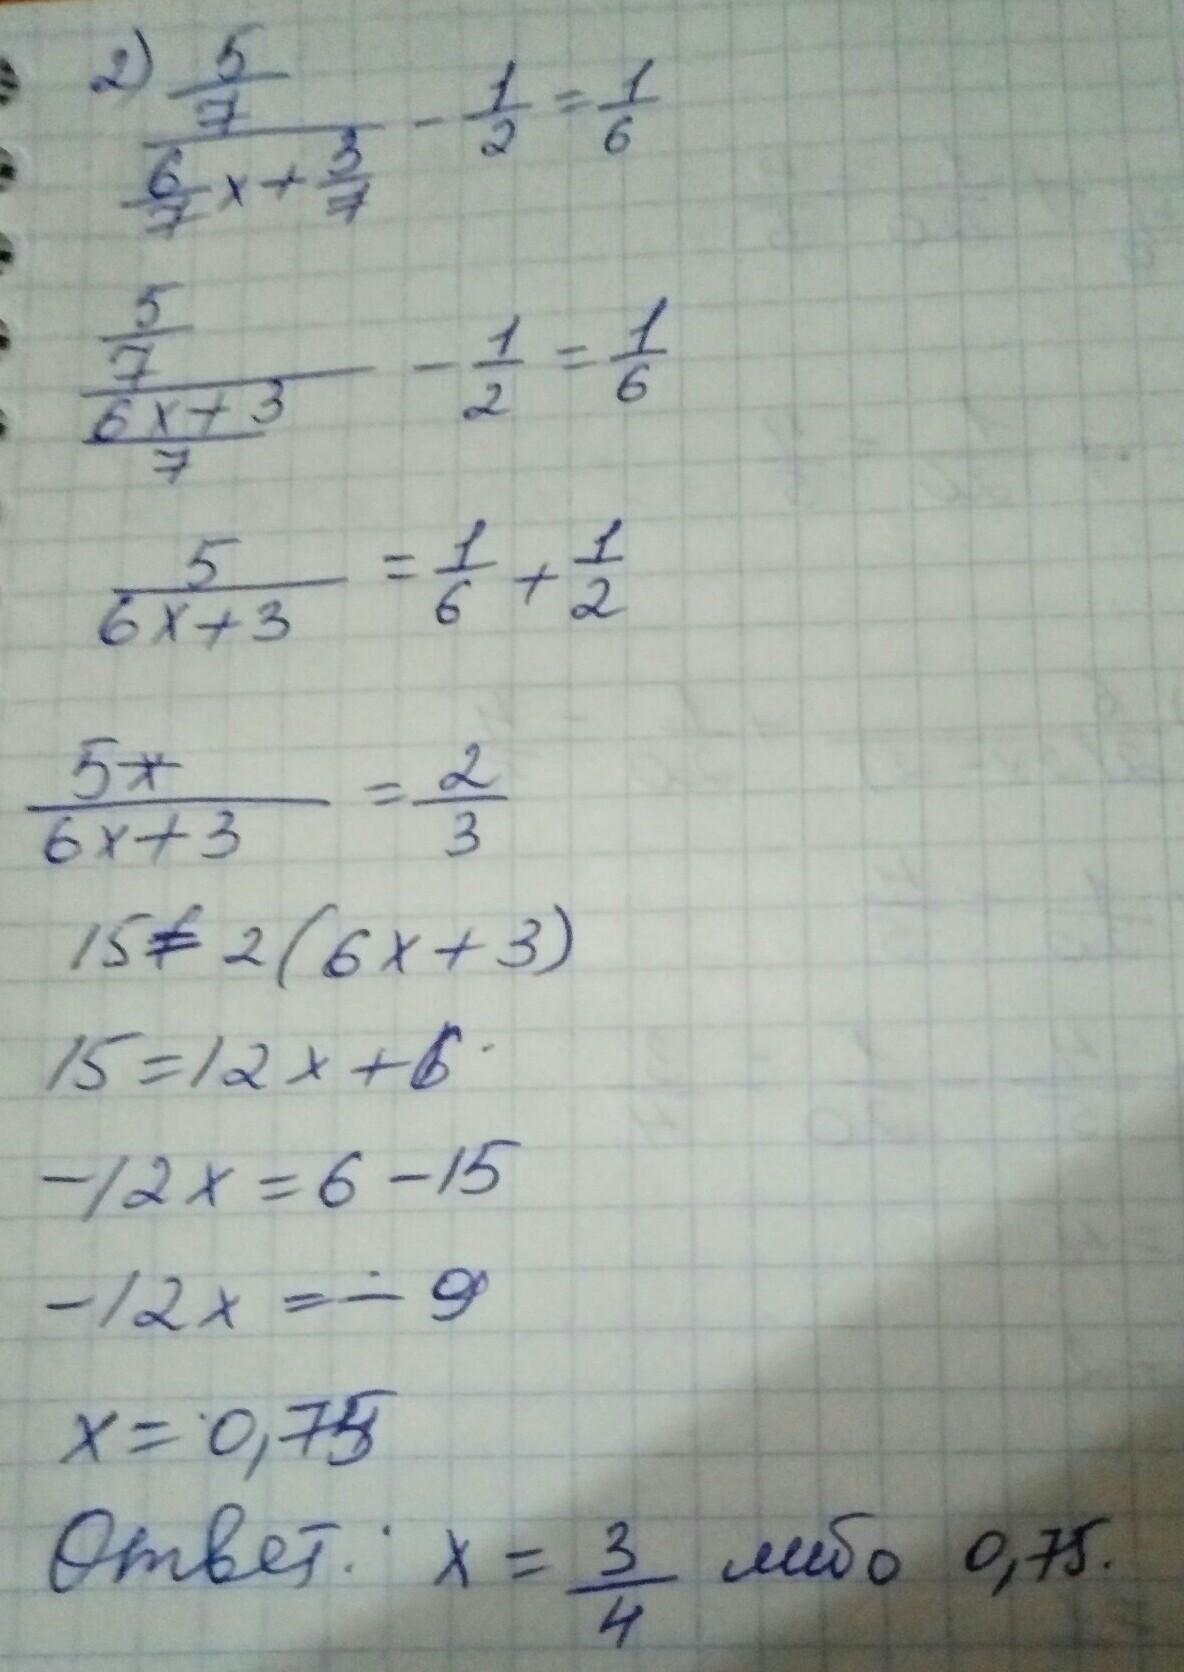 2) 5/7 / (6/7 x + 3/7) - 1/2 = 1/6
5/7 / ((6x + 3)/7) - 1/2 = 1/6
5/(6x + 3) = 1/6 + 1/2
5x/(6x + 3) = 2/3
15 = 2(6x + 3)
15 = 12x + 6
-12x = 6 - 15
-12x = - 9
x = 0,75
Ответ: x = 3/4 либо 0,75.